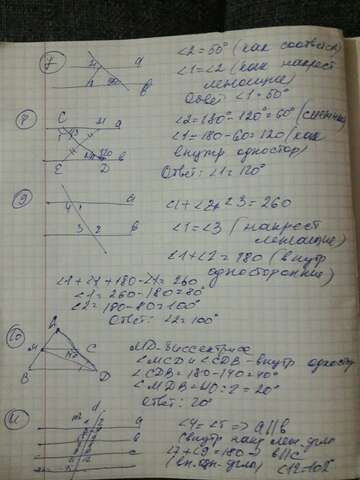 7
M
a
A
50°
B
∠2=50° (как соответств
∠1=∠2 (как накрест
лежащие)
Ответ: ∠1=50°
8
C
M
a
E
D
b
∠2=180°-120°=60° (смежные
∠1=180-60=120 (как
внутр одностор)
Ответ: ∠1=120°
9
4 1
a
3 2
b
∠1+∠2+∠3=260
∠1=∠3 (накрест
лежащие)
∠1+∠2=180 (внутр
односторонние)
∠1+∠1+180-∠1=260
∠1=260-180=80°
∠2=180-80=100°
Ответ: ∠2=100°
10
A
M
C
B
D
MD-биссектриса
∠MCD и ∠CDB-внутр одностор
∠CDB=180-140=40°
∠MDB=40:2=20°
Ответ: 20°
11
d
a
b
c
∠4=∠5 => a||b
(внутр накр леж. угла
∠7+∠9=180 => b||c
(вн. одн. угла)
∠12=102°